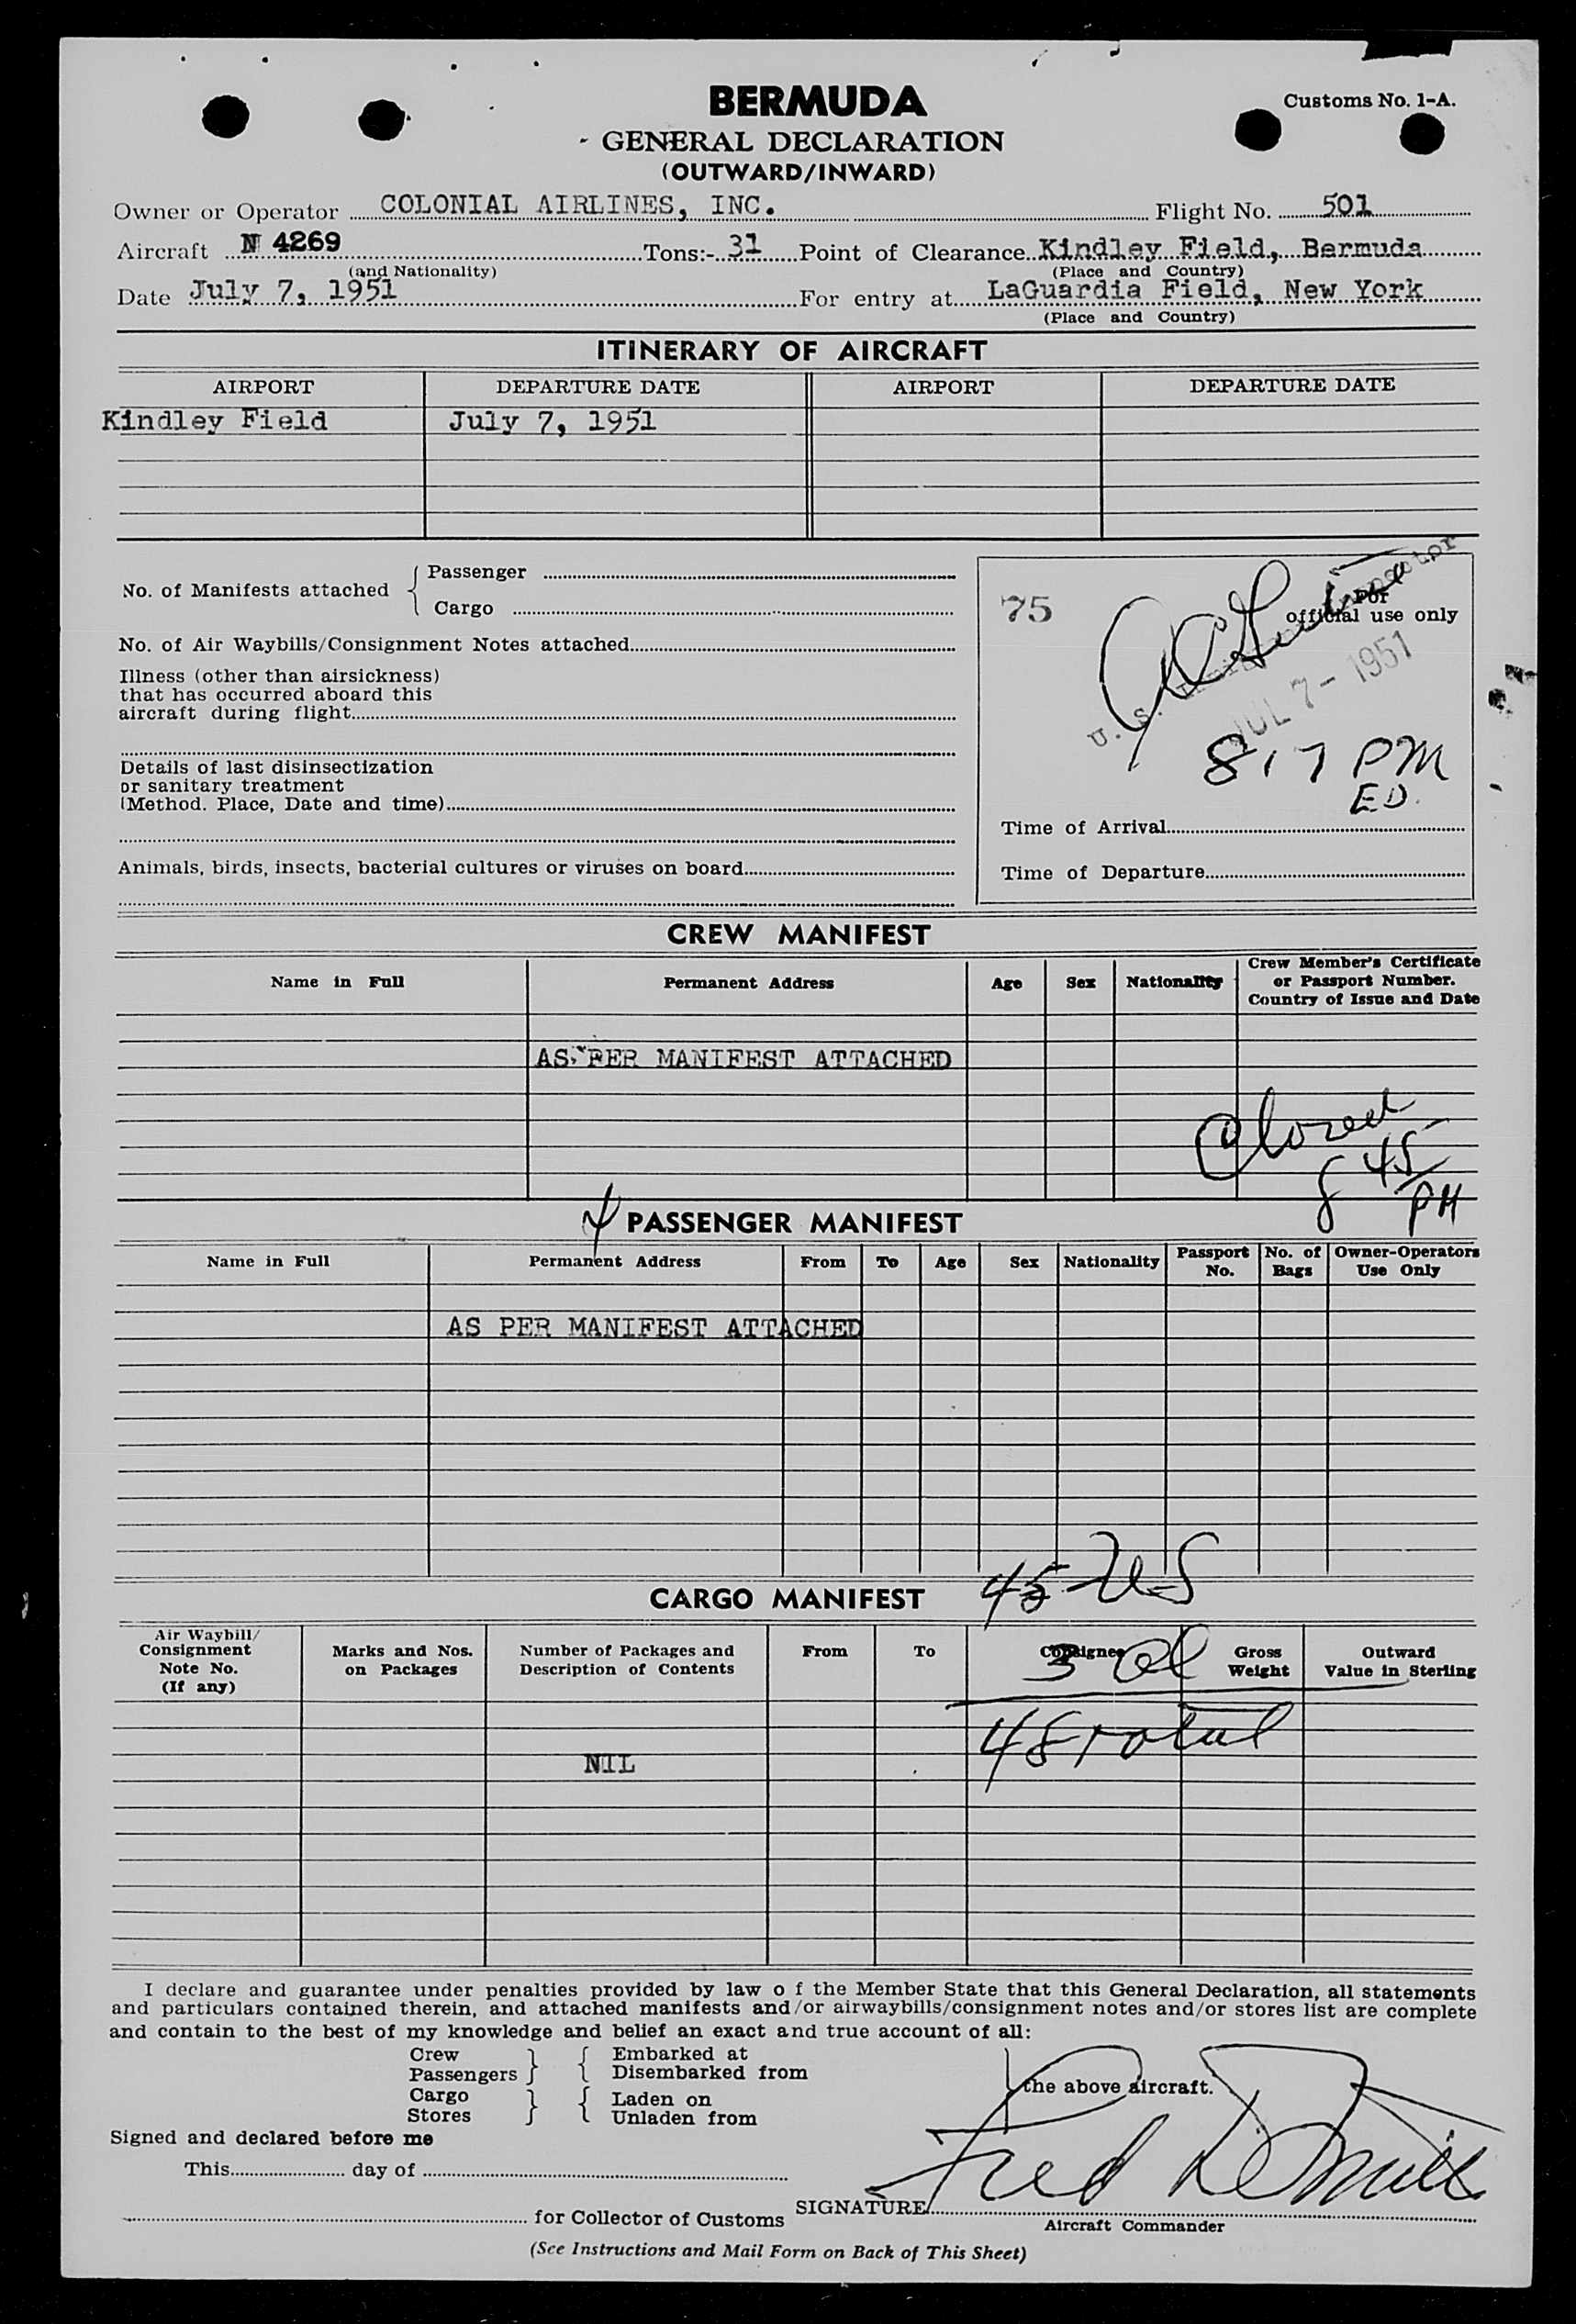 BERMUDA
Customs No. 1-A.
GENERAL DECLARATION
(OUTWARD/INWARD)
Owner or Operator COLONIAL AIRLINES, INC. Flight No. 501
Aircraft N 4269 Tons:- 31 Point of Clearance Kindley Field, Bermuda
(and Nationality) (Place and Country)
Date July 7, 1951 For entry at LaGuardia Field, New York
(Place and Country)
ITINERARY OF AIRCRAFT
AIRPORT DEPARTURE DATE AIRPORT DEPARTURE DATE
Kindley Field July 7, 1951
No. of Manifests attached { Passenger
Cargo
No. of Air Waybills/Consignment Notes attached
Illness (other than airsickness)
that has occurred aboard this
aircraft during flight
Details of last disinsectization
or sanitary treatment
(Method. Place, Date and time)
Animals, birds, insects, bacterial cultures or viruses on board
75
For
official use only
U. S.
JUL 7 - 1951
817 PM
ED.
Time of Arrival
Time of Departure
CREW MANIFEST
Name in Full Permanent Address Age Sex Nationality Crew Member's Certificate
or Passport Number.
Country of Issue and Date
AS PER MANIFEST ATTACHED
8 45
PM
4 PASSENGER MANIFEST
Name in Full Permanent Address From To Age Sex Nationality Passport No. No. of Bags Owner-Operators Use Only
AS PER MANIFEST ATTACHED
45 US
CARGO MANIFEST
Air Waybill/
Consignment
Note No.
(If any)
Marks and Nos.
on Packages
Number of Packages and
Description of Contents
From To Consignee
Gross
Weight
Outward
Value in Sterling
3 al
48 total
NIL
I declare and guarantee under penalties provided by law o f the Member State that this General Declaration, all statements
and particulars contained therein, and attached manifests and/or airwaybills/consignment notes and/or stores list are complete
and contain to the best of my knowledge and belief an exact and true account of all:
Crew } { Embarked at
Passengers Disembarked from
the above aircraft.
Cargo } { Laden on
Stores Unladen from
Signed and declared before me
This day of
for Collector of Customs SIGNATURE
Aircraft Commander
(See Instructions and Mail Form on Back of This Sheet)